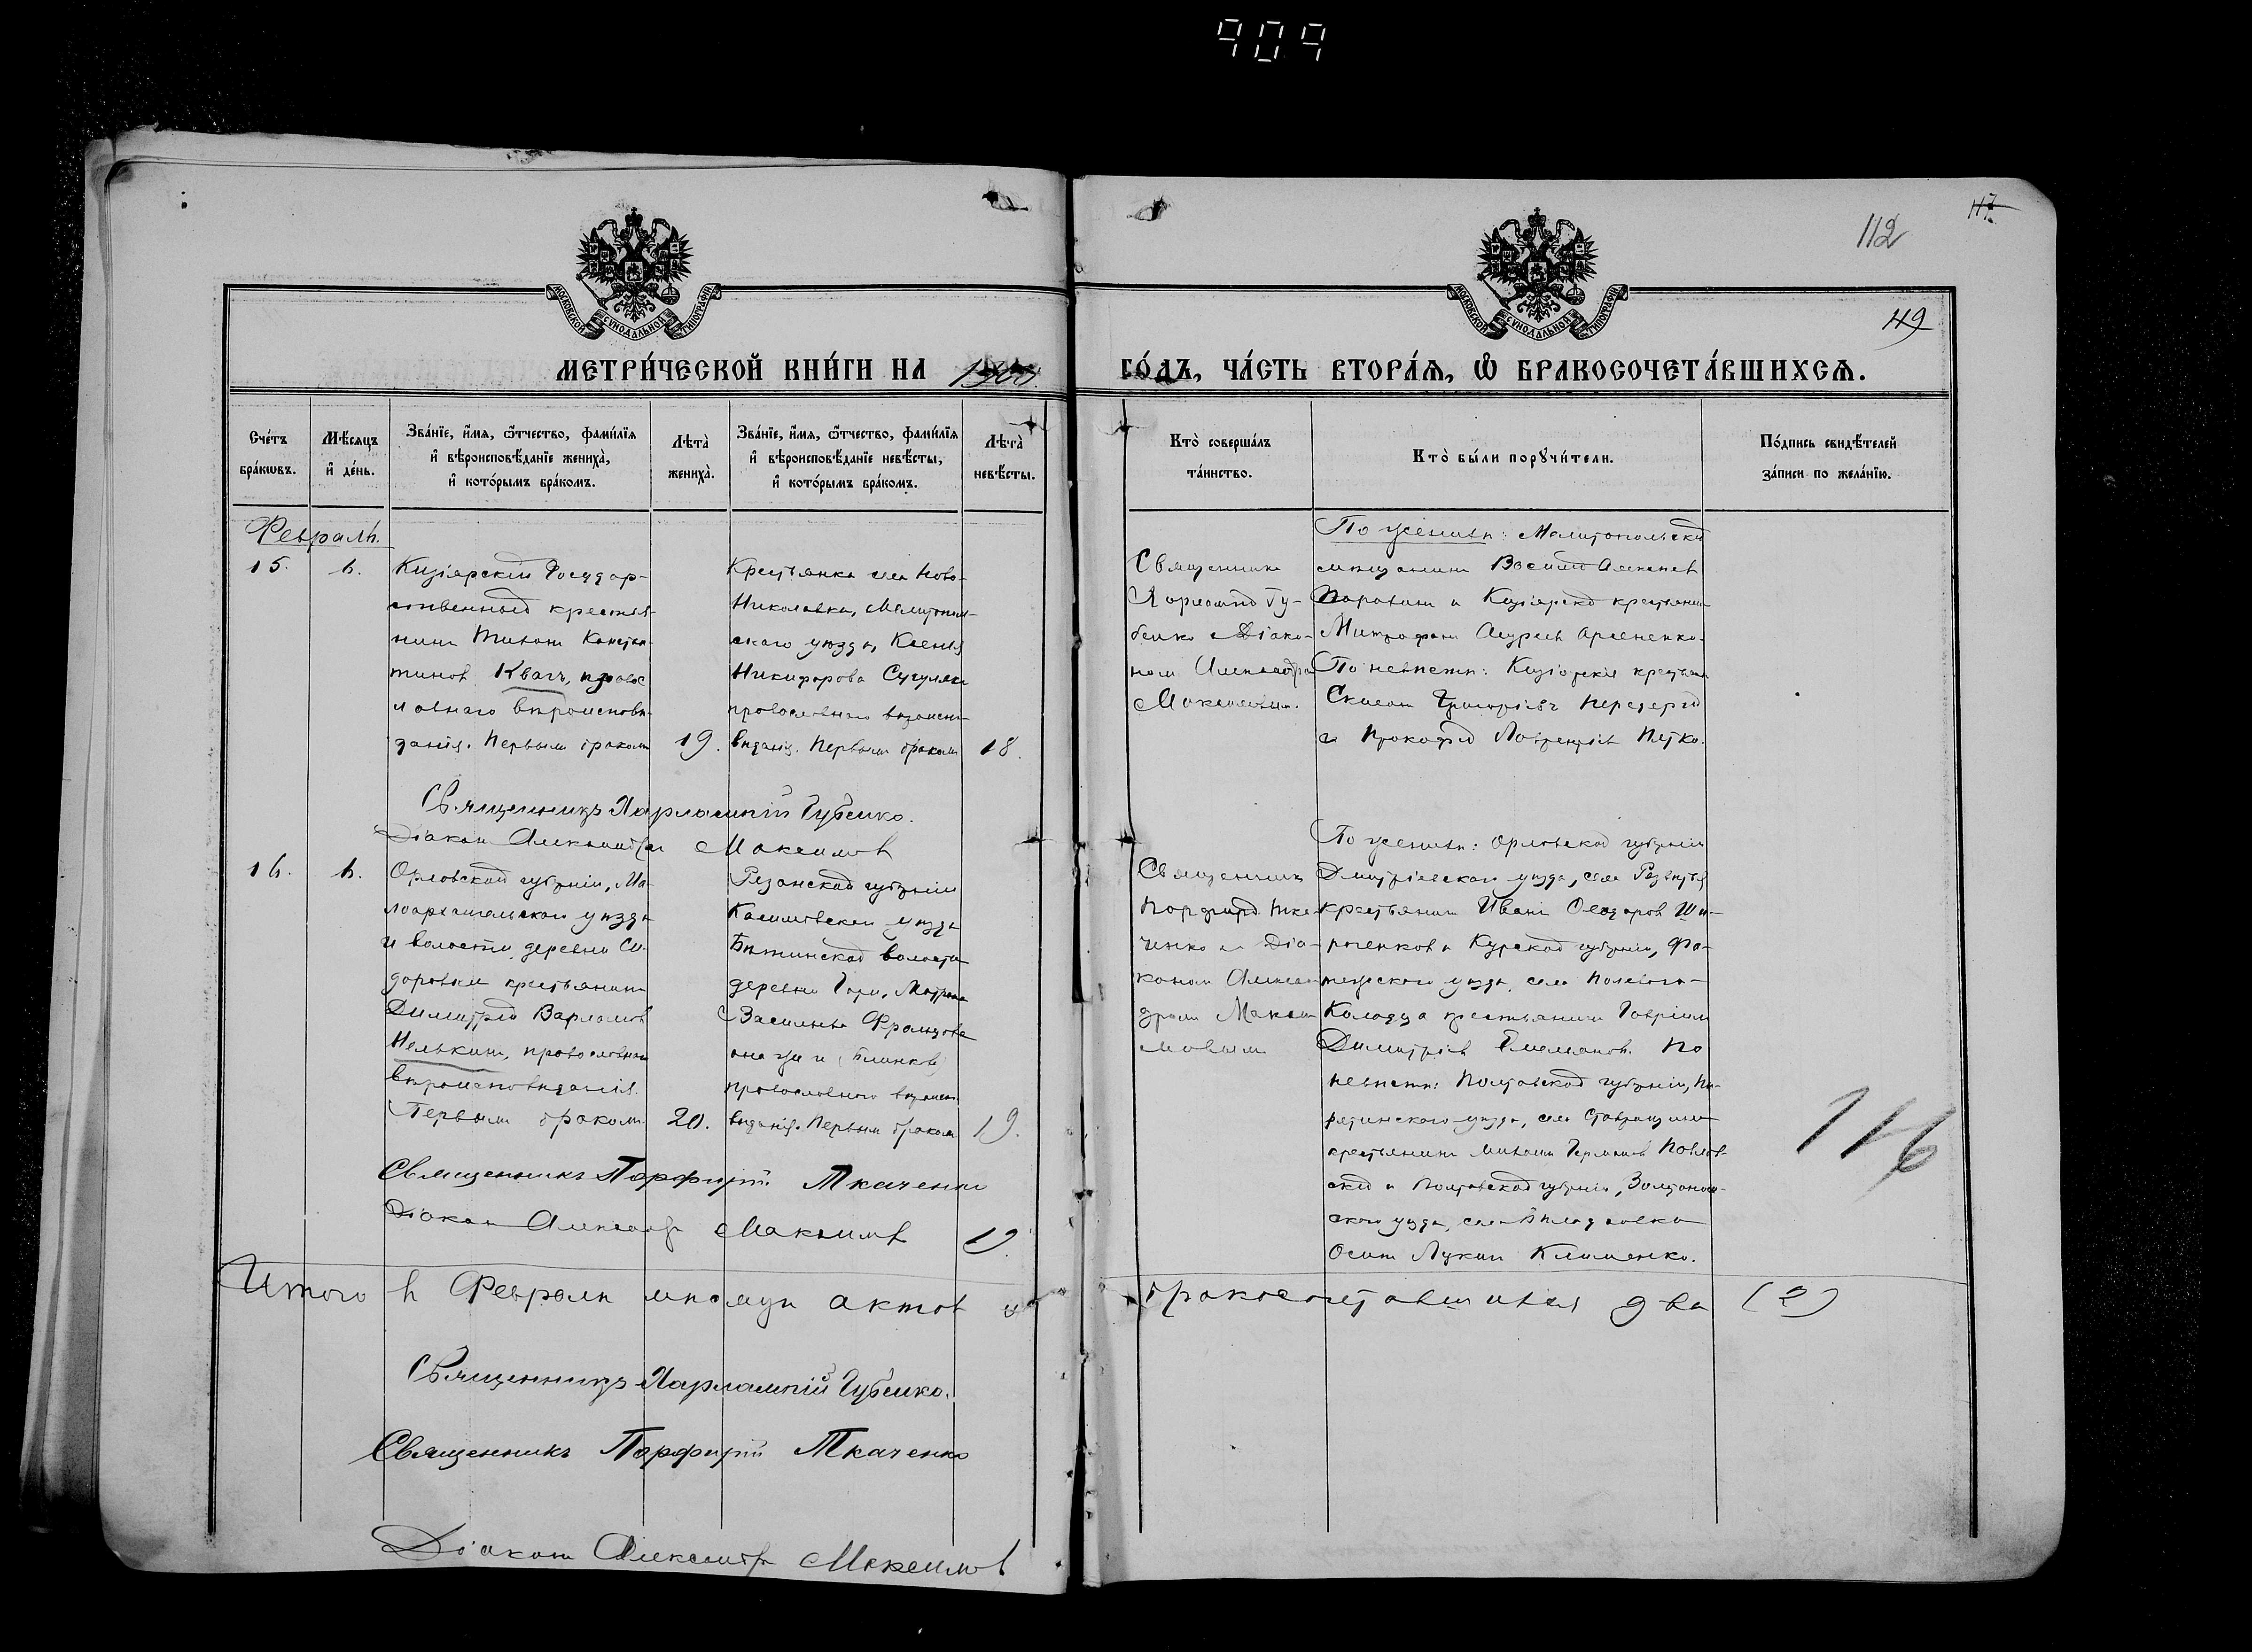 909
117
112
119
МОСКОВСКОЙ СѴНОДАЛЬНОЙ ТИПОГРАФІИ
МОСКОВСКОЙ СѴНОДАЛЬНОЙ ТИПОГРАФІИ
МЕТРИ́ЧЕСКОЙ КНИ́ГИ НА 1900 ГО́ДЪ, ЧА́СТЬ ВТОРА́Я, Ѡ БРАКОСОЧЕТА́ВШИХСЯ.
Сче́тъ бра́кѡвъ.
Мѣ́сяцъ и҆ де́нь.
Зва́нїе, и҆́мя, ѻ҆́тчество, фами́лїя
и҆ вѣроисповѣ́данїе жениха̀,
и҆ кото́рымъ бра́комъ.
Лѣта̀ жениха̀.
Зва́нїе, и҆́мя, ѻ҆́тчество, фами́лїя
и҆ вѣроисповѣ́данїе невѣ́сты,
и҆ кото́рымъ бра́комъ.
Лѣта̀ невѣ́сты.
Кто̀ соверша́лъ
та́инство.
Кто̀ бы́ли порꙋчи́тели.
По́дпись свидѣ́телей
за́писи по жела́нїю.
Февраль.
15.
6.
Кизіярскій Государ-
ственный крестья-
нинъ Констан-
тиновъ Квачъ, правос
лавнаго вѣроисповѣ-
данія. Первымъ бракомъ
19.
Крестьянка села Ново-
Николавки, Мелитополь-
скаго уѣзда, Ксенія
Никифорова
православнаго вѣроиспо-
вѣданія. Первымъ бракомъ
18.
Священникъ
Харлампій Гу-
бенко съ Діако-
номъ Александромъ
Максимовымъ.
По женихѣ: Мелитопольскій
мѣщанинъ Василій
и Кизіярскій крестьянинъ
Митрофанъ Андреевъ Арсененко.
По невѣстѣ: Кизіярскіе крестьяне
Григорьевъ
и Прокофій Лаврентьевъ
Священникъ Харлампій Губенко.
Діаконъ Александръ Максимовъ
16.
6.
Орловской губерніи, Ма-
лоархангельскаго уѣзда
и волости, деревни Си-
доровки крестьянинъ
Димитрій Варламовъ
православнаго
вѣроисповѣданія.
Первымъ бракомъ
20.
Рязанской губерніи
Касимовскаго уѣзда
волости
деревни Матрона
Васильева
она же и
православнаго вѣроиспо-
вѣданія. Первымъ бракомъ
19.
Священникъ
Порфирій Тка-
ченко съ Діа-
кономъ Алексан-
дромъ Макси-
мовымъ
По женихѣ: Орловской губерніи
Дмитріевскаго уѣзда, села
крестьянинъ Иванъ Ѳеодоровъ
Курской губерніи, Фа-
тежскаго уѣзда, села Полевого-
Колодца крестьянинъ Гавріилъ
Димитріевъ Емельяновъ. По
невѣстѣ: Полтавской губерніи, Пи-
рятинскаго уѣзда, села
крестьянинъ Михаилъ Павлов-
скій и Полтавской губерніи, Золтонош-
скаго уѣзда, села
Осипъ Лукинъ Клименко.
116
Священникъ Порфирій Ткаченко
Діаконъ Александръ Максимовъ
Итого въ Февралѣ мѣсяцѣ актовъ о бракосочетавшихся два (2)
Священникъ Харлампій Губенко.
Священникъ Порфирій Ткаченко
Діаконъ Александръ Максимовъ